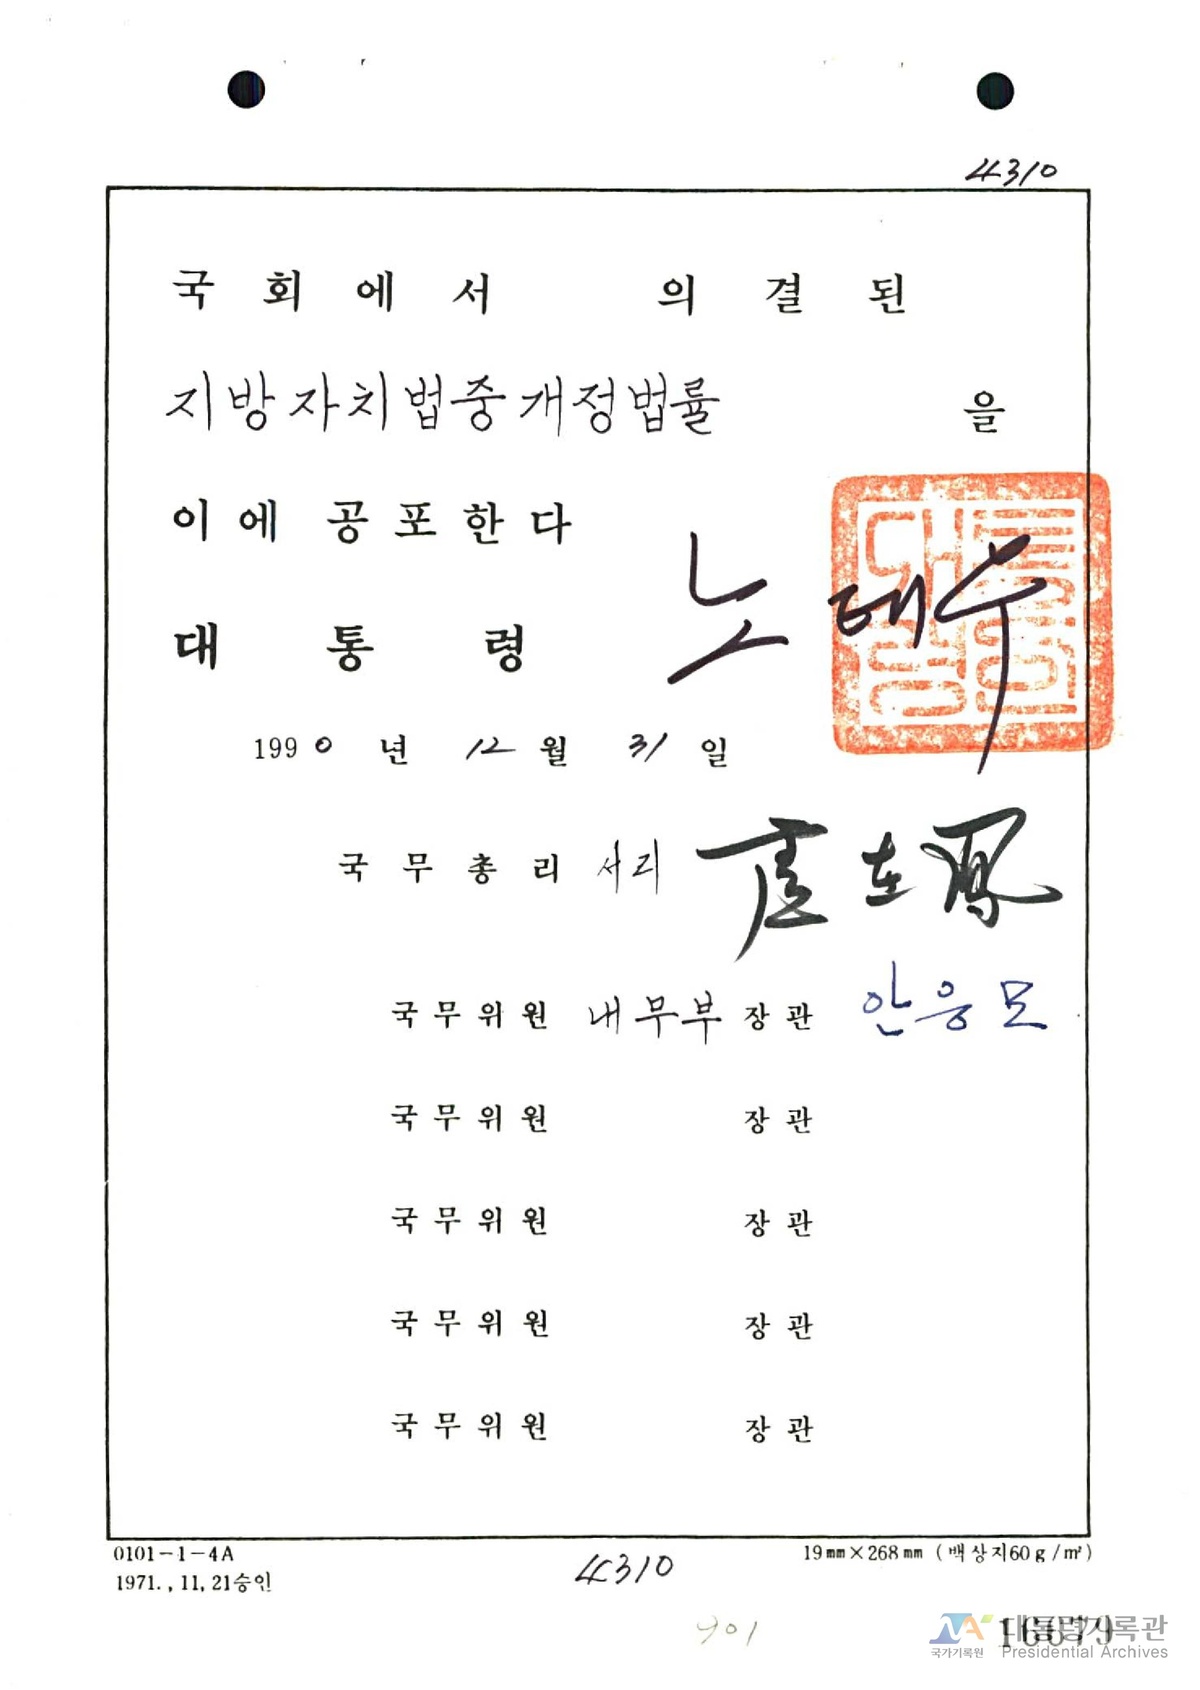 4310
국 회 에 서 의 결 된
지방자치법중개정법률 을
이에 공포한다
대 통 령 노태우
대통령인
1990 년 12 월 31 일
국 무 총 리 서리 盧在鳳
국 무 위 원 내무부 장 관 안응모
국 무 위 원 장 관
국 무 위 원 장 관
국 무 위 원 장 관
국 무 위 원 장 관
0101-1-4A 19㎜×268㎜ (백상지60g/㎡)
1971., 11, 21승인
4310
901
국가기록원 대통령기록관
Presidential Archives